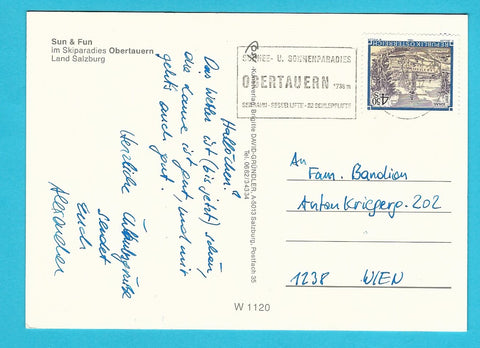 Sun & Fun
im Skiparadies Obertauern
Land Salzburg
Hallöchen!
Das Wetter ist (bis jetzt) schön,
die Laune ist gut, und mir
geht's auch gut.
Herzliche Urlaubsgrüße
sendet
Euch
Alexander
SCHNEE- U. SONNENPARADIES
OBERTAUERN 1738 m
REPUBLIK ÖSTERREICH
4.50
Kunstverlag Brigitte DAVID-GRÜNDLER, A-5013 Salzburg, Postfach 35
Tel. 0662/34334
An
Fam. Bandion
Anton Kriegerg. 202
1238 WIEN
W 1120